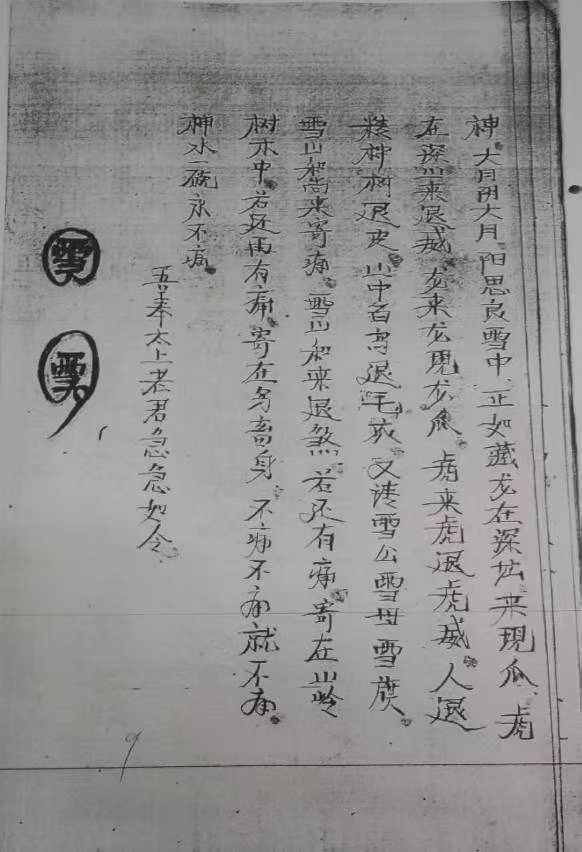 神大月阴大月阳思良雪中正如藏龙在深坛来现爪虎
在深山来退威龙来龙现龙爪虎来虎退虎威人退
精神树退皮山中百鸟退毛衣又请雪公雪母雪
雪山和尚来寄痛雪山和来退煞若还有痛寄在山岭
树木中若还再有痛寄在身不痛不痛就不痛
神水一碗永不痛
吾奉太上老君急急如令
雪
雪
9